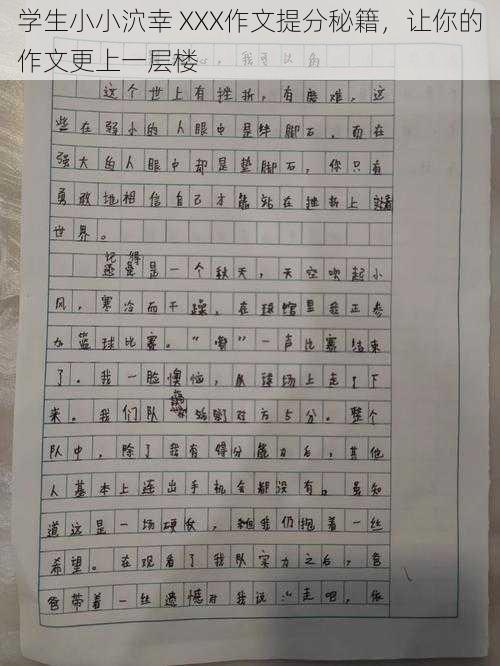 学生小小泬幸 XXX作文提分秘籍，让你的
作文更上一层楼
心，我可以的
这个世上有挫折，有磨难，这
些在弱小的人眼中是绊脚石，而在
强大的人眼中却是垫脚石，你只有
勇敢地相信自己才能站在挫折上 站着
世界。
记得
还是一个秋天，天空吹起小
风，寒冷而干躁，在球馆里我正参
加篮球比赛。“嘶”一声比赛结束
了。我一脸懊恼，从球场上走了下
来。我们队 对方5分。整个
队中，除了我有得分能力后，其他
人基本上连出手机会都没有。虽知
道这是一场硬仗，但我仍抱着一丝
希望。在观看了我队实力之后，爸
爸带着一丝遗憾对我说：“走吧，依